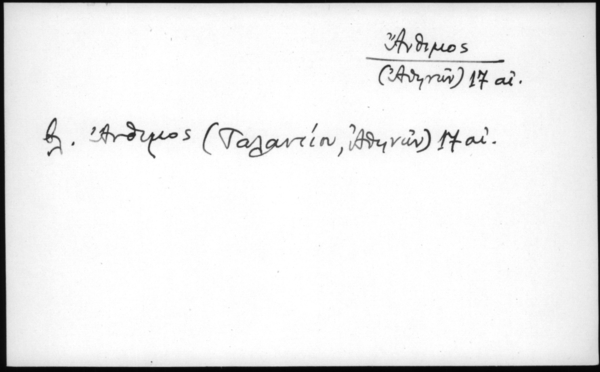 Ἄνθιμος
(Ἀθηνῶν) 17 αἰ.
βλ. Ἄνθιμος (Ταλαντίου, Ἀθηνῶν) 17 αἰ.